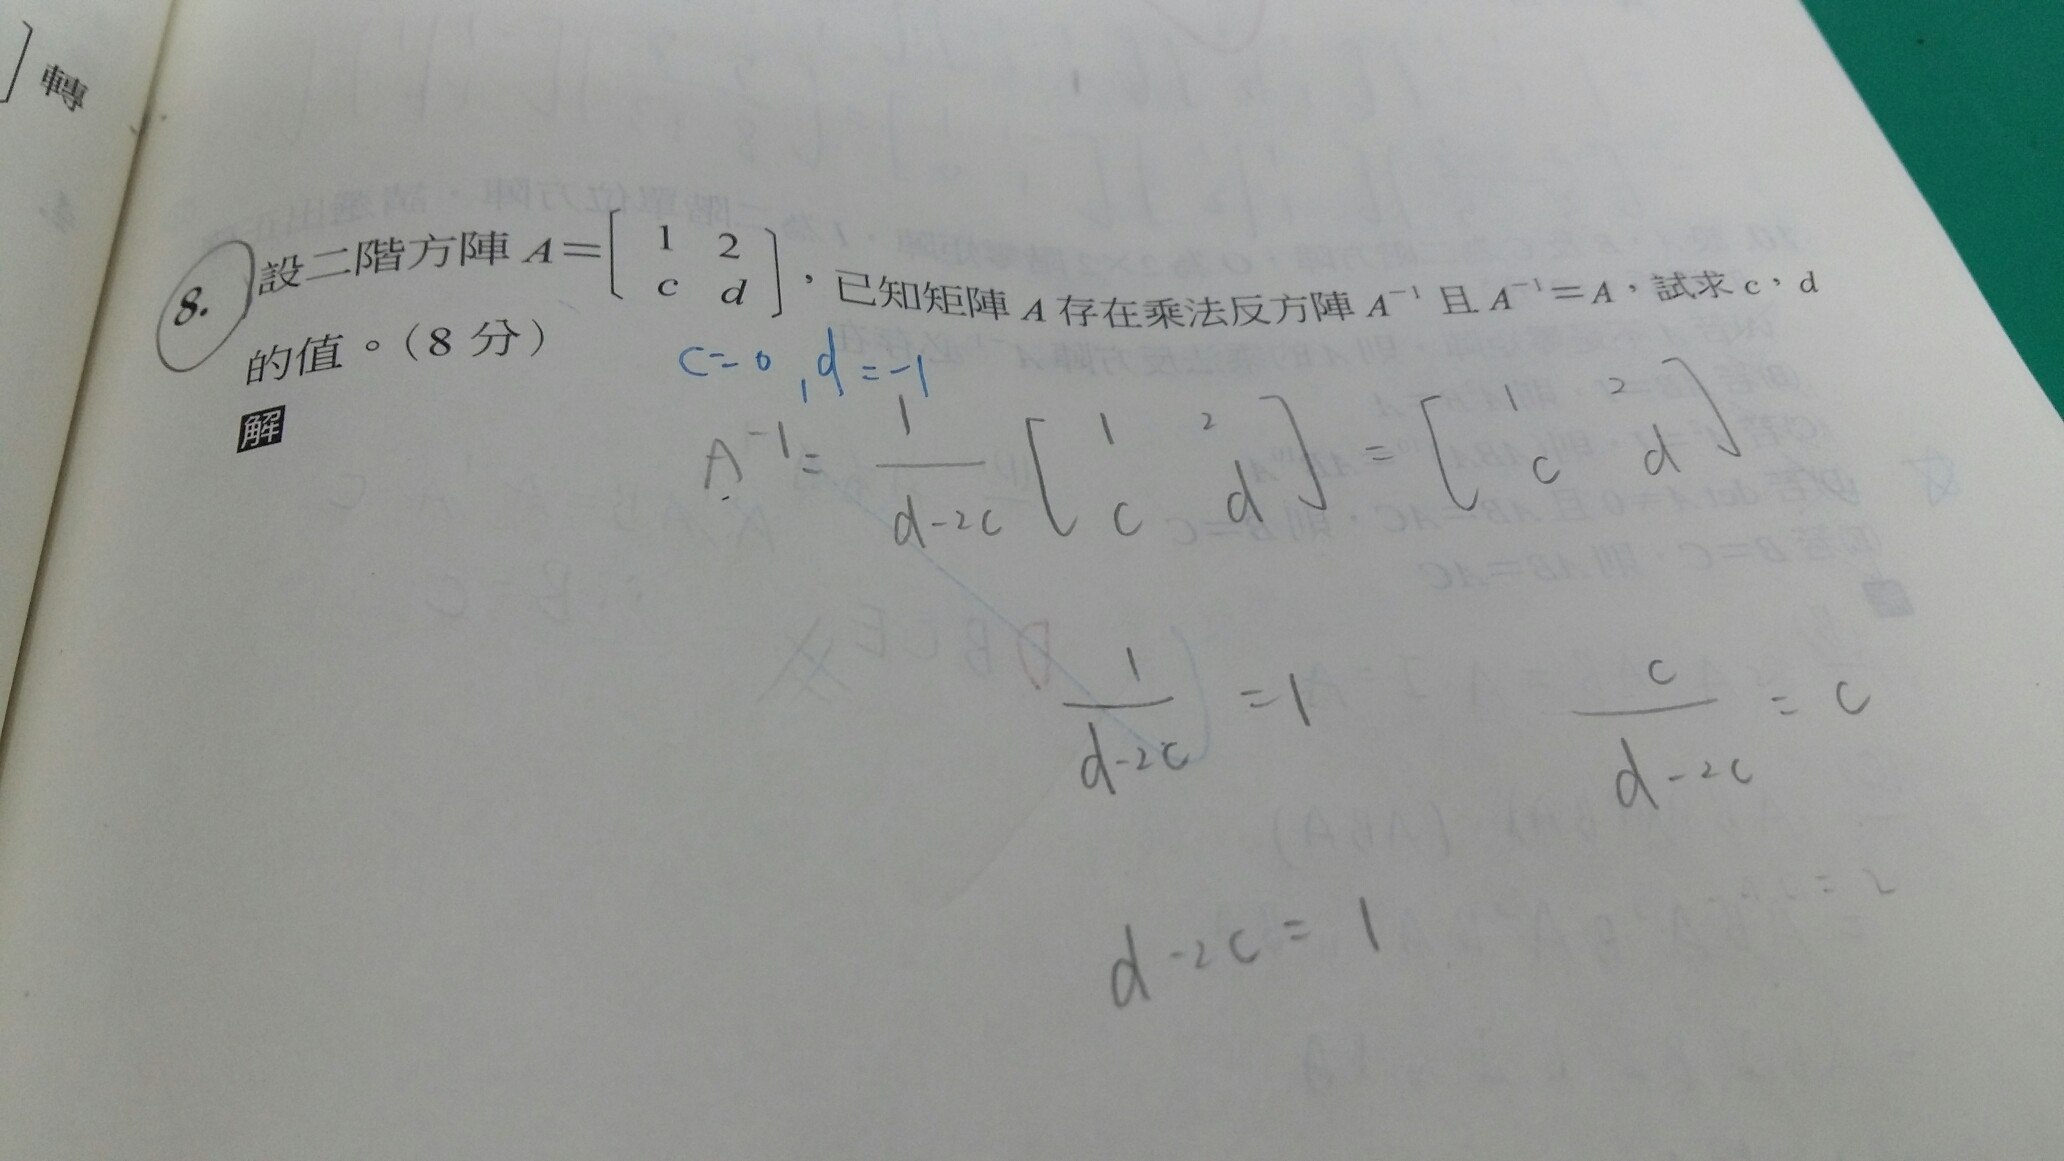 轉
8. 設二階方陣 A=[1 2 c d],已知矩陣 A 存在乘法反方陣 A⁻¹ 且 A⁻¹=A,試求 c,d
的值。(8 分)
c=0, d=-1
解
A⁻¹= 1/(d-2c) [1 2 c d] = [1 2 c d]
1/(d-2c) =1 c/(d-2c) = c
d-2c=1